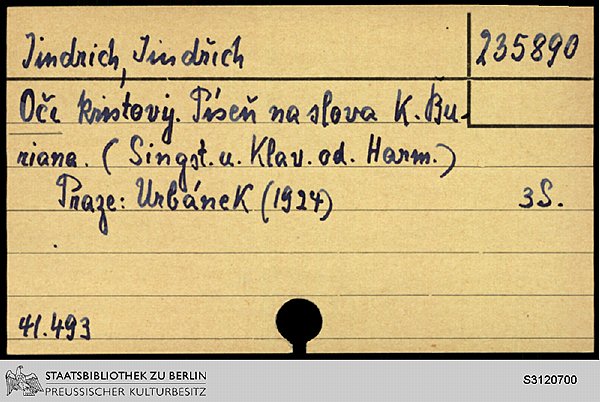 Jindrich, Jindřich
235890
Oči Kristovy. Píseň na slova K. Bu-
riana. (Singst. u. Klav. od. Harm.)
Praze: Urbánek (1924) 3S.
41.493
STAATSBIBLIOTHEK ZU BERLIN
PREUSSISCHER KULTURBESITZ
S3120700